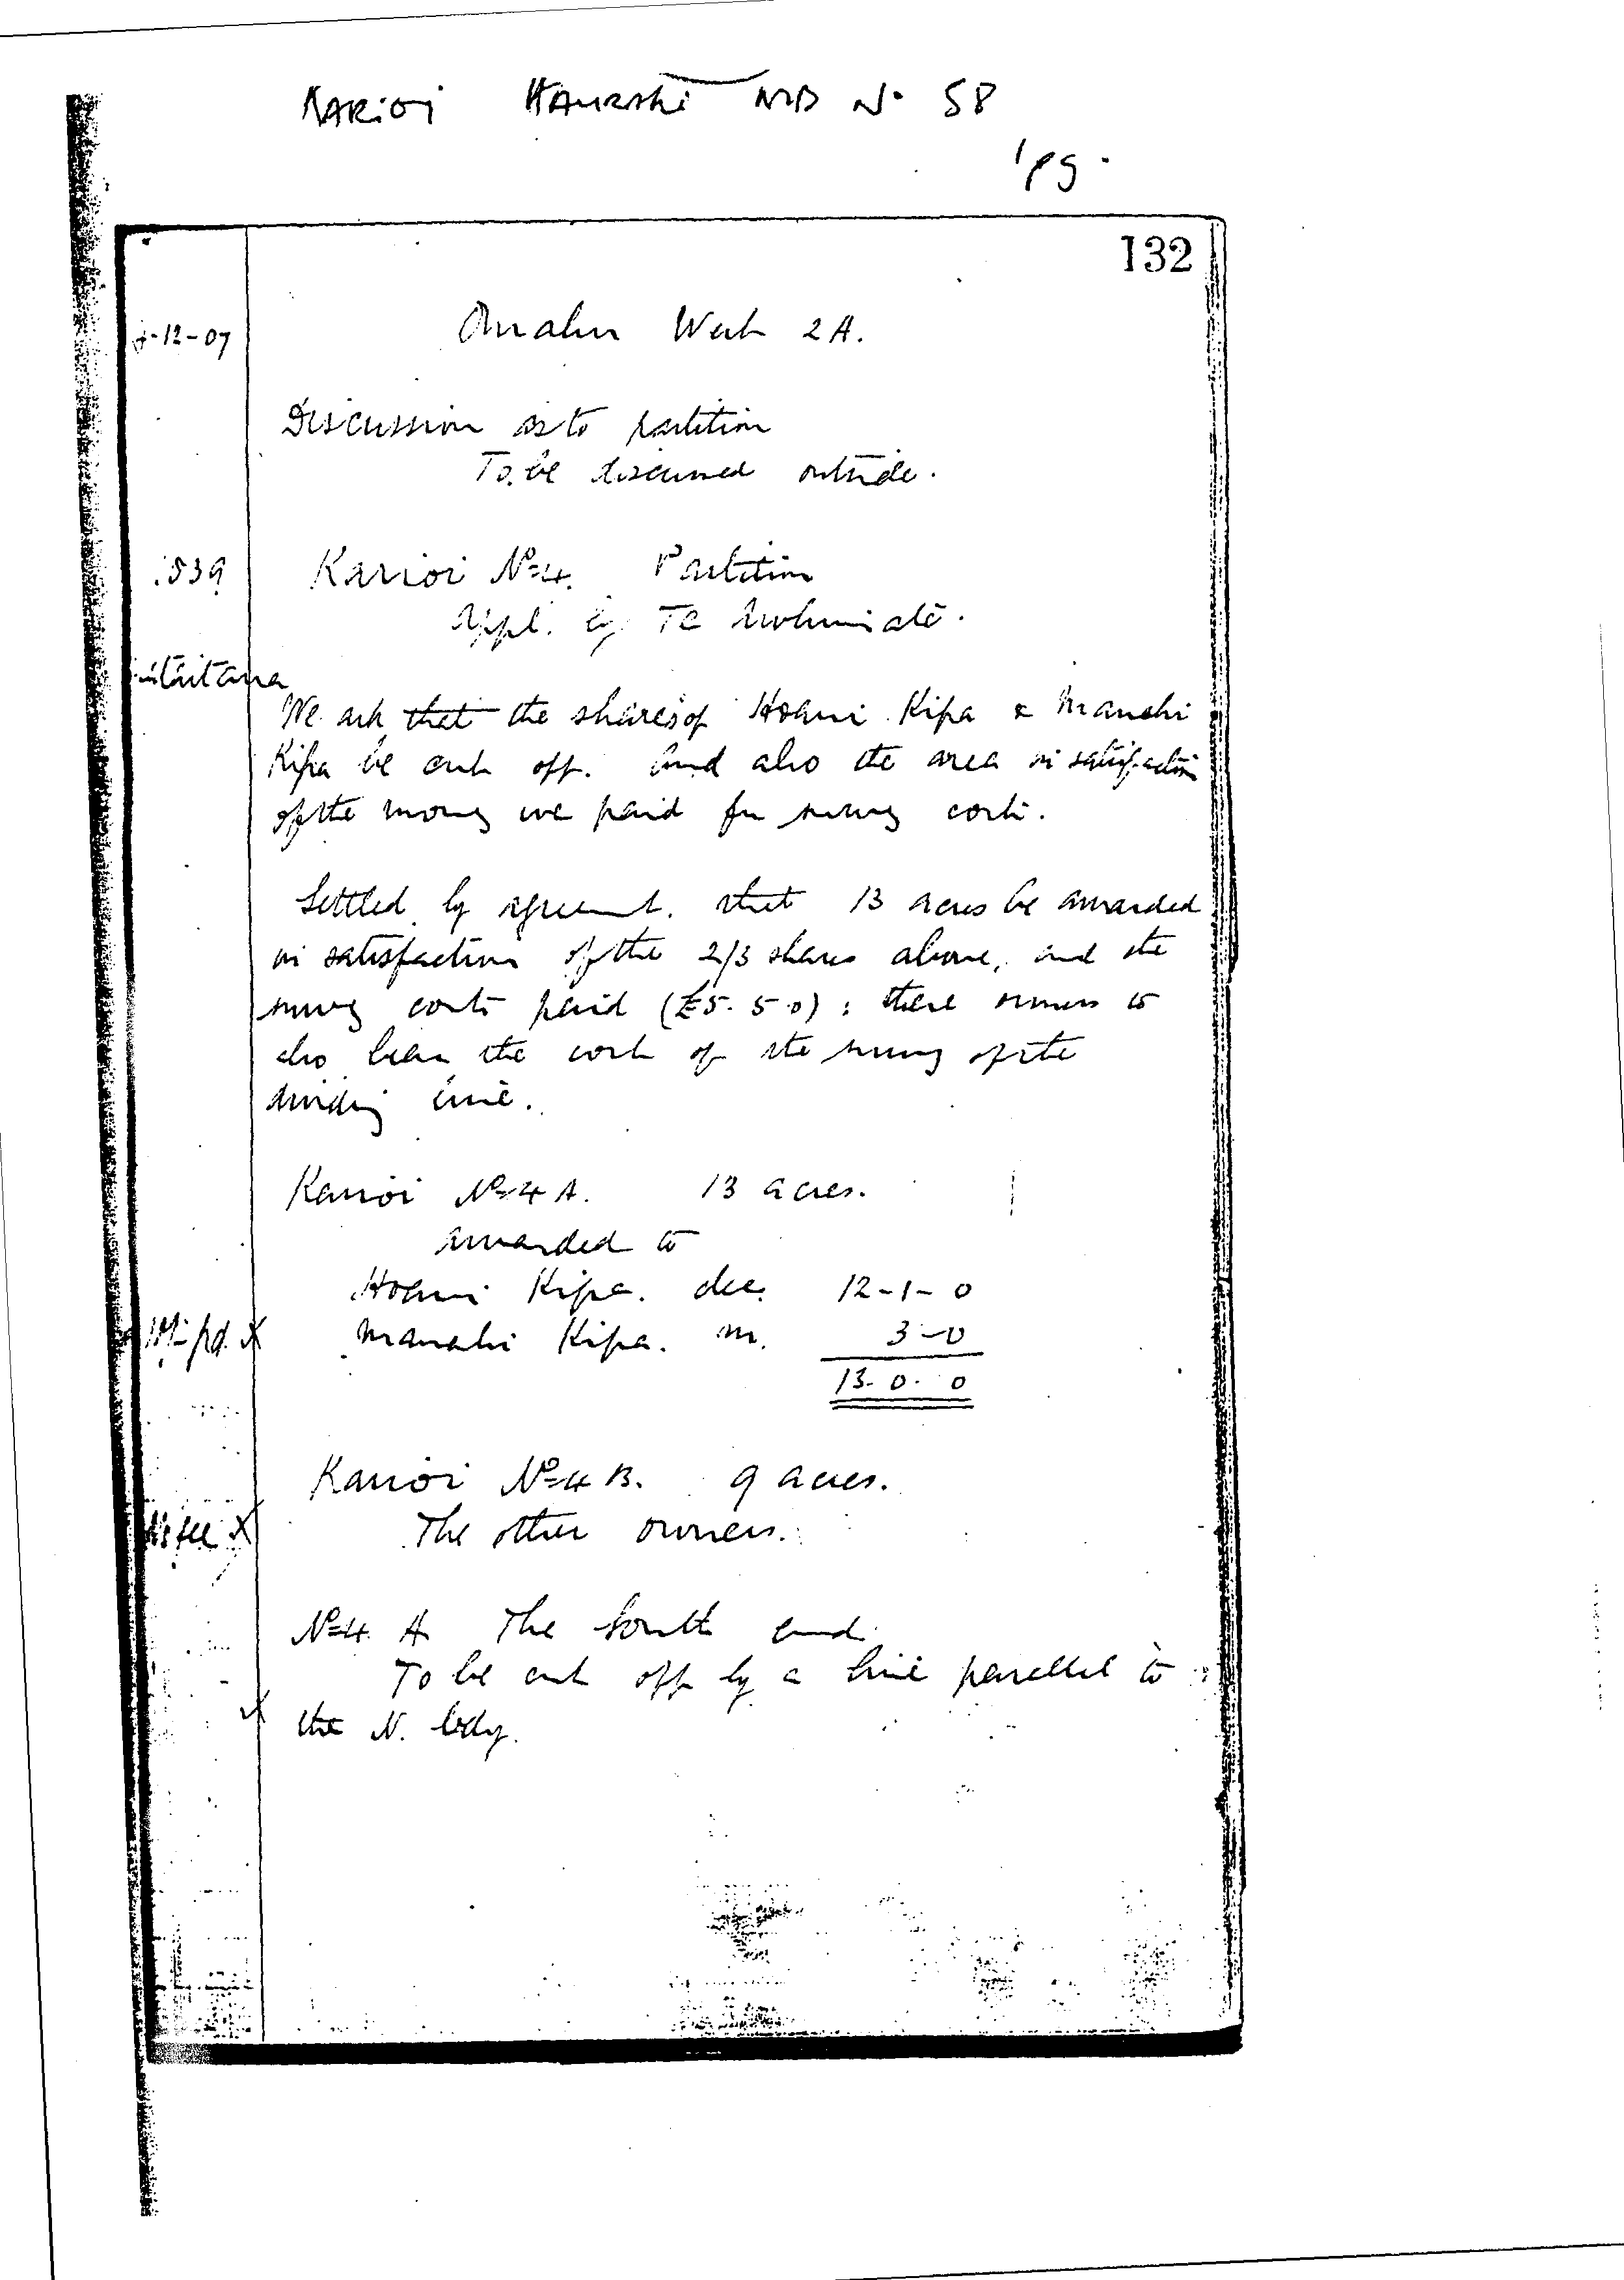 KARIOI HAURAKI MB No 58
1 pg.
132
-12-07
Omahu West 2A.
Discussion as to partition
To be discussed outside.
839 Karioi No 4. Partition
Appl. by Te
We ask that the shares of Hoani Kipa & Manahi
Kipa be cut off. And also the area in satisfaction
of the money we paid for survey costs.
Settled by agreement. that 13 acres be awarded
in satisfaction of the 2/3 shares above, and the
survey costs paid (£5.5.0): these owners to
also bear the cost of the survey of the
dividing line.
Karioi No 4 A. 13 acres.
awarded to
Hoani Kipa. dec. 12-1-0
pd. X Manahi Kipa. m. 3-0
13.0.0
Karioi No 4 B. 9 acres.
fee X The other owners.
No 4. A The South end.
To be cut off by a line parallel to
X the N. bdy.